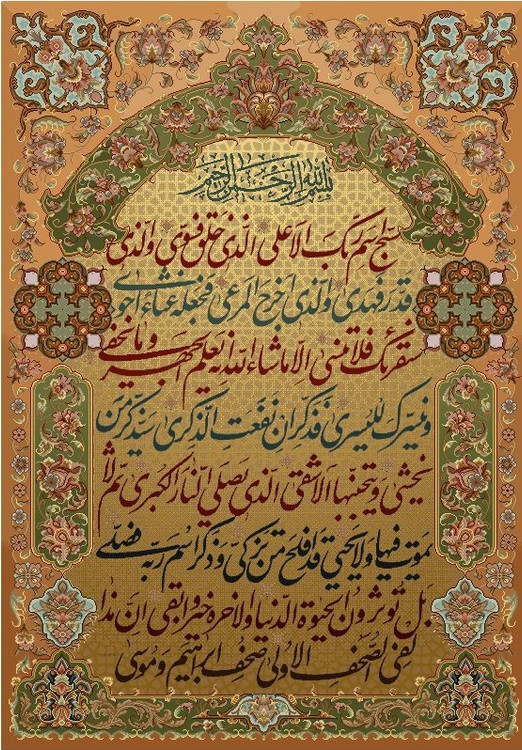 بسم الله الرحمن الرحيم
سبح اسم ربك الاعلى الذى خلق فسوى والذى
قدر فهدى والذى اخرج المرعى فجعله غثاء احوى
سنقرئك فلا تنسى الا ما شاء الله انه يعلم الجهر وما يخفى
ونيسرك لليسرى فذكر ان نفعت الذكرى سيذكر من
يخشى ويتجنبها الاشقى الذى يصلى النار الكبرى ثم لا
يموت فيها ولا يحيى قد افلح من تزكى وذكر اسم ربه فصلى
بل تؤثرون الحيوة الدنيا والاخرة خير وابقى ان هذا
لفى الصحف الاولى صحف ابراهيم وموسى